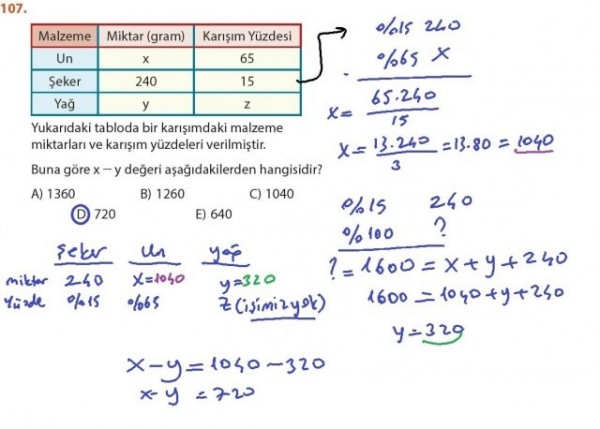 107.
Malzeme Miktar (gram) Karışım Yüzdesi
Un x 65
Şeker 240 15
Yağ y z
Yukarıdaki tabloda bir karışımdaki malzeme
miktarları ve karışım yüzdeleri verilmiştir.
Buna göre x – y değeri aşağıdakilerden hangisidir?
A) 1360 B) 1260 C) 1040
D) 720 E) 640
%15 240
%65 X
x = 65.240 / 15
x = 13.240 / 3 = 13.80 = 1040
%15 240
%100 ?
? = 1600 = x + y + 240
1600 = 1040 + y + 240
y = 320
Şeker Un yağ
miktar 240 X=1040 y=320
Yüzde %15 %65 Z (işimiz yok)
x – y = 1040 – 320
x – y = 720